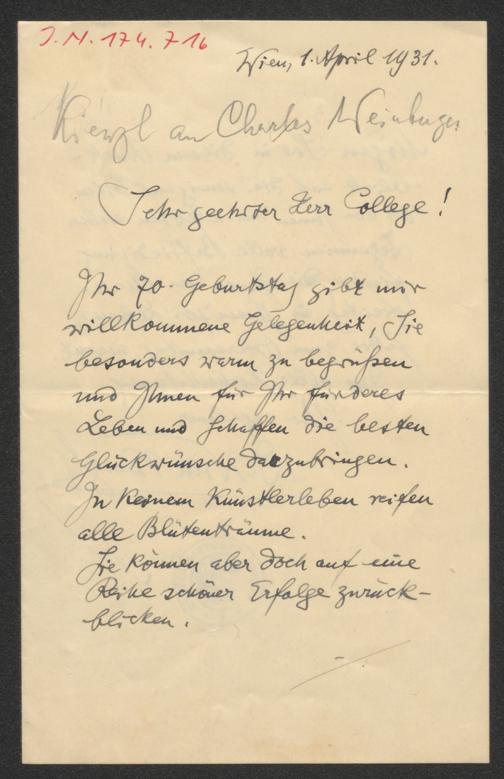 J.N. 174.716
Wien, 1. April 1931.
Kienzl an Charles Weinberger
Sehr geehrter Herr College!
Ihr 70. Geburtstag gibt mir
willkommene Gelegenheit, Sie
besonders warm zu begrüßen
und Ihnen für Ihr fürderes
Leben und Schaffen die besten
Glückwünsche darzubringen.
In keinem Künstlerleben reifen
alle Blütenträume.
Sie können aber doch auf eine
Reihe schöner Erfolge zurück-
blicken.